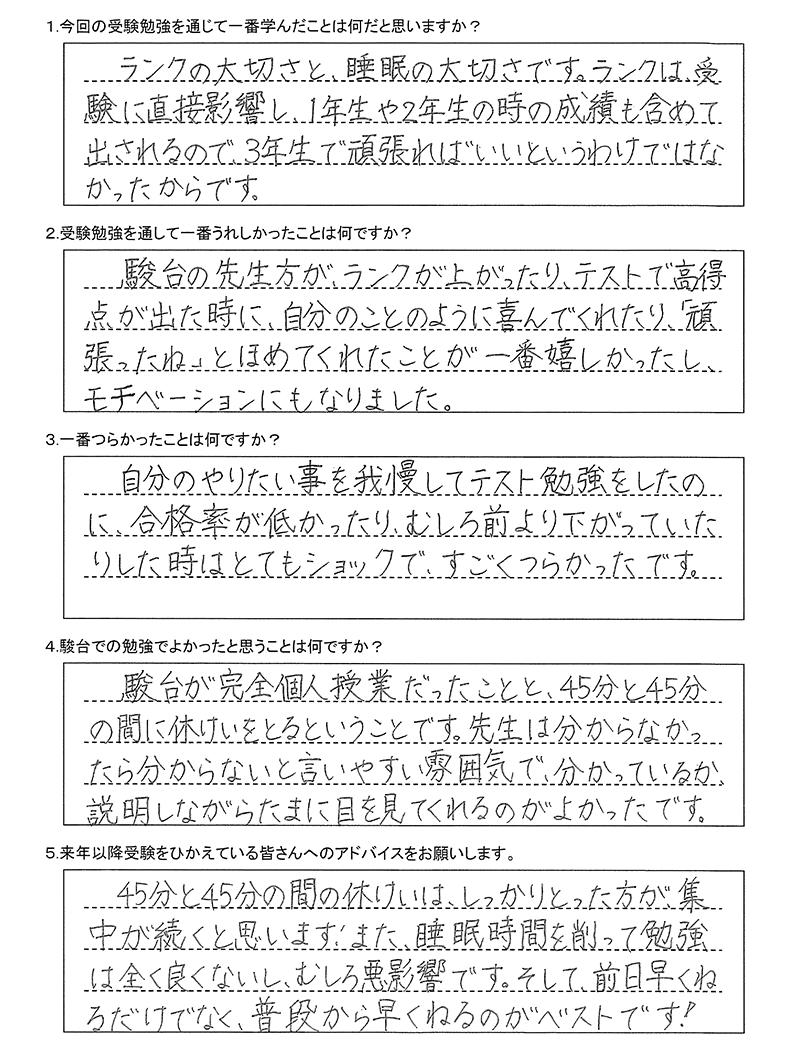 1.今回の受験勉強を通じて一番学んだことは何だと思いますか？
ランクの大切さと、睡眠の大切さです。ランクは、受
験に直接影響し、1年生や2年生の時の成績も含めて
出されるので、3年生で頑張ればいいというわけではな
かったからです。
2.受験勉強を通して一番うれしかったことは何ですか？
駿台の先生方が、ランクが上がったり、テストで高得
点が出た時に、自分のことのように喜んでくれたり、「頑
張ったね」とほめてくれたことが一番嬉しかったし、
モチベーションにもなりました。
3.一番つらかったことは何ですか？
自分のやりたい事を我慢してテスト勉強をしたの
に、合格率が低かったり、むしろ前より下がっていた
りした時はとてもショックで、すごくつらかったです。
4.駿台での勉強でよかったと思うことは何ですか？
駿台が完全個人授業だったことと、45分と45分
の間に休けいをとるということです。先生は分からなかっ
たら分からないと言いやすい雰囲気で、分かっているか、
説明しながらたまに目を見てくれるのがよかったです。
5.来年以降受験をひかえている皆さんへのアドバイスをお願いします。
45分と45分の間の休けいは、しっかりとった方が集
中が続くと思います!また、睡眠時間を削って勉強
は全く良くないし、むしろ悪影響です。そして、前日早くね
るだけでなく、普段から早くねるのがベストです!